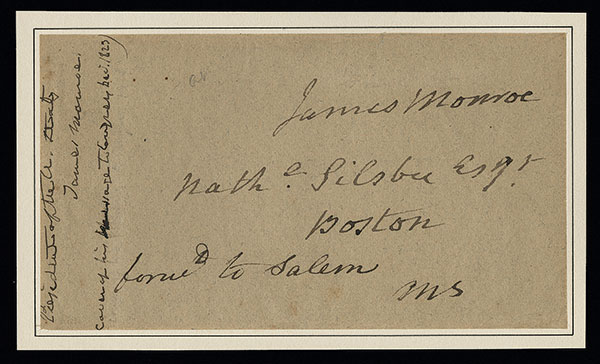 James Monroe
Nathl. Silsbee Esqr
Boston
forwd to Salem
Ms
President of the U. States
James Monroe.
Cover of his Message to Congress Dec. 1823